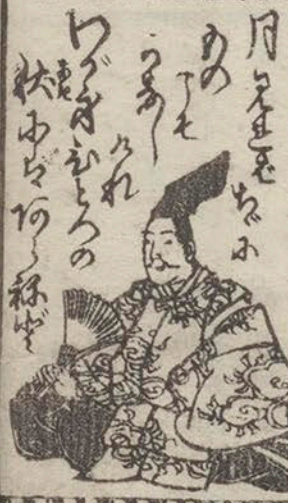 月見れば ちゞに
ものこそ
かなし
けれ
わが身ひとつの
秋にはあらねど